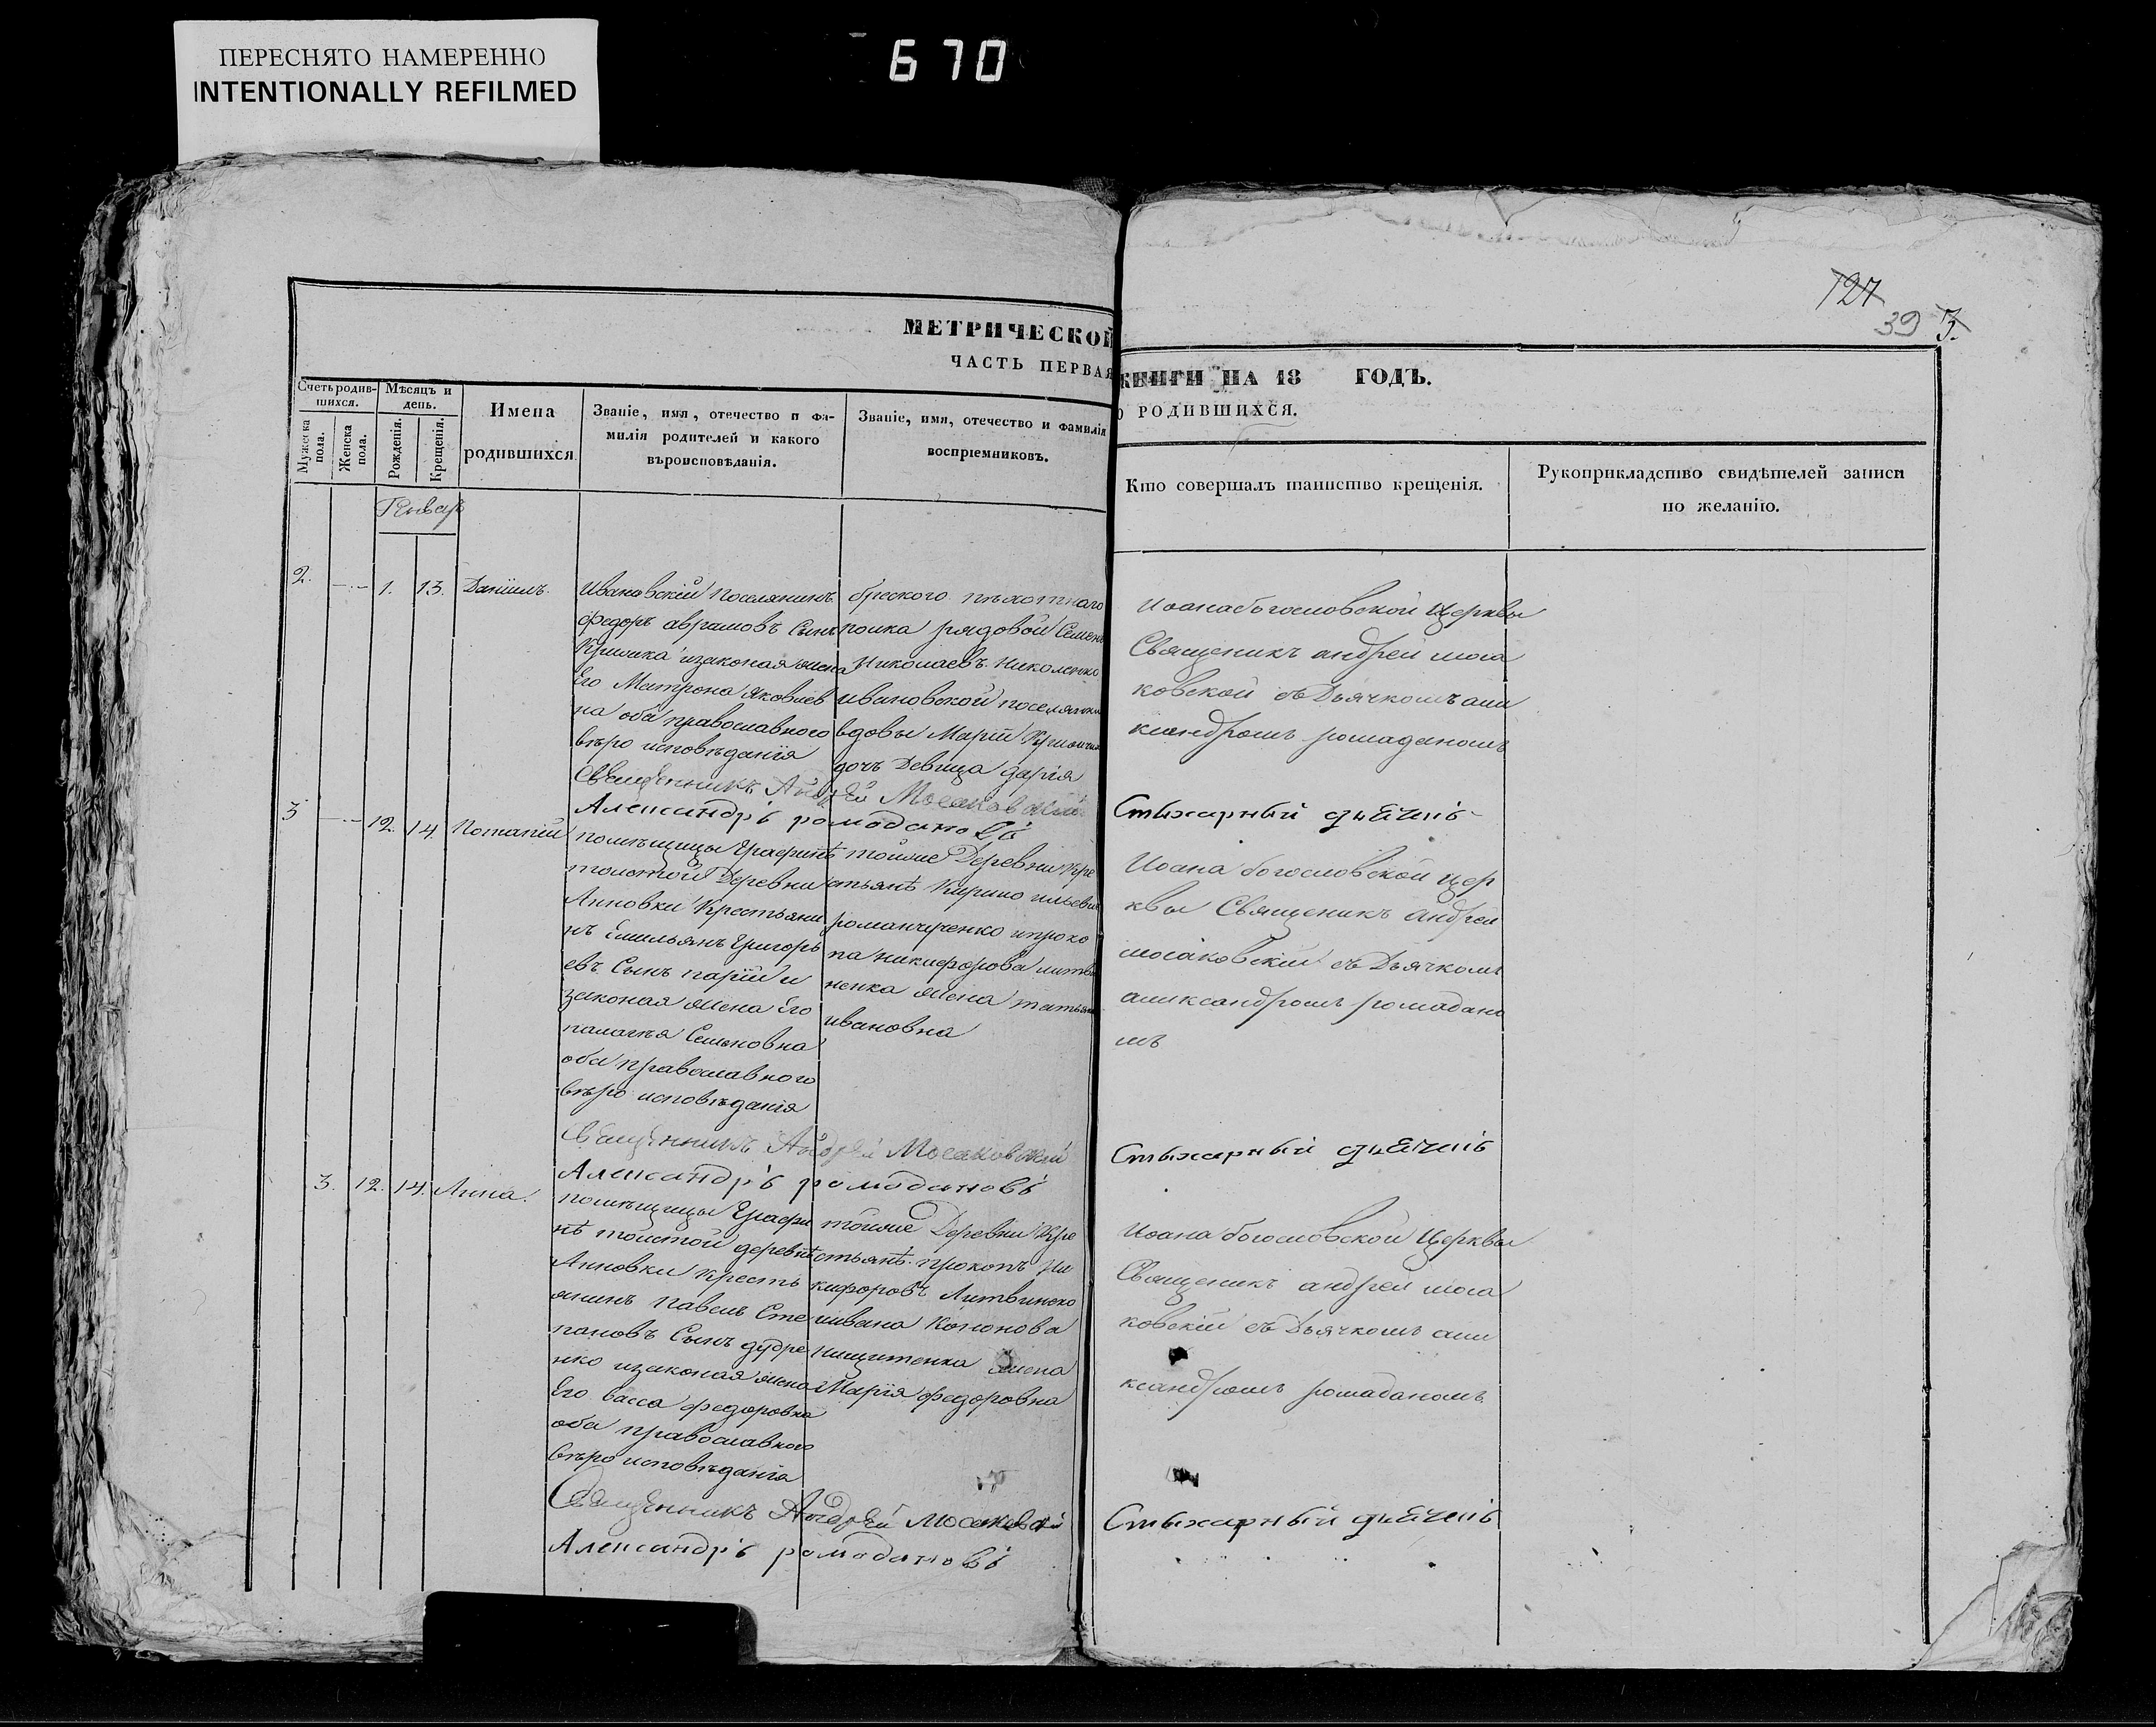 ПЕРЕСНЯТО НАМЕРЕННО
INTENTIONALLY REFILMED
670
127
39 3.
МЕТРИЧЕСКОЙ
КНИГИ НА 18 ГОДЪ.
ЧАСТЬ ПЕРВАЯ
О РОДИВШИХСЯ.
Счетъ родив-
шихся.
Мужеска
пола.
Женска
пола.
Мѣсяцъ и
день.
Рожденія.
Крещенія.
Имена
родившихся
Званіе, имя, отечество и фа-
милія родителей и какого
вѣроисповѣданія.
Званіе, имя, отечество и фамилія
воспріемниковъ.
Кто совершалъ таинство крещенія.
Рукоприкладство свидѣтелей записи
по желанію.
Генварь
2. 1. 13. Даніилъ.
Ивановскій поселянинъ
Федоръ аврамовъ Сынъ
изаконая жена
Его Матрона Яковлев
на оба православного
вѣро исповѣданія
пѣхотнаго
полка рядовой Семенъ
Николаевъ Николенко
ивановской поселянки
вдовы Маріи
дочъ Девица дарія
Иоанабогословской Церквы
Священикъ андрей моса
ковской съ Дьячкомъ али
ксандромъ ромаданомъ
Священникъ Андрей Мосаковскій
Александръ ромодановъ
Стихарный дьячекъ
3 12. 14. Потапій
помѣщицы Графинѣ
толстой Деревни
Анновки Крестьяни
нъ Емильянъ Григорь
евъ Сынъ гарій и
законая жена Его
палагея Семеновна
оба православного
вѣро исповѣданія
тойже Деревни Кре
стьянѣ Кирило ильевъ
романченко ипроко
па никифорова литви
ненка жена татьяна
ивановна
Иоана богословской цер
квы Священикъ андрей
мосаковскій съ Дьячкомъ
александромъ ромадано
мъ
Священникъ Андрей Мосаковскій
Александръ ромодановъ
Стихарный дьячекъ
3. 12. 14. Анна.
помѣщицы Графи
нѣ толстой деревнѣ
Анновки кресть
янинъ павелъ Сте
пановъ Сынъ дудре
нко изаконая жена
Его васса федоровна
оба православного
вѣро исповѣданія
тойже Деревни Кре
стьянѣ прокопъ Ни
кифоровъ Литвиненко
иивана Кононова
нищитенка жена
Марія федоровна
Иоана богословской Церквы
Священикъ андрей моса
ковскій съ Дьячкомъ али
ксандромъ ромаданомъ
Священникъ Андрей Мосаковскій
Александръ ромодановъ
Стихарный дьячекъ